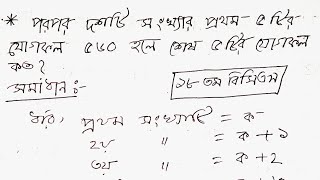 * পরপর দশটি সংখ্যার প্রথম ৫টির
যোগফল ৫৬০ হলে শেষ ৫টির যোগফল
কত?
১৮ তম বিসিএস
সমাধান :-
ধরি, প্রথম সংখ্যাটি = ক
২য় " = ক + ১
৩য় " = ক + ২